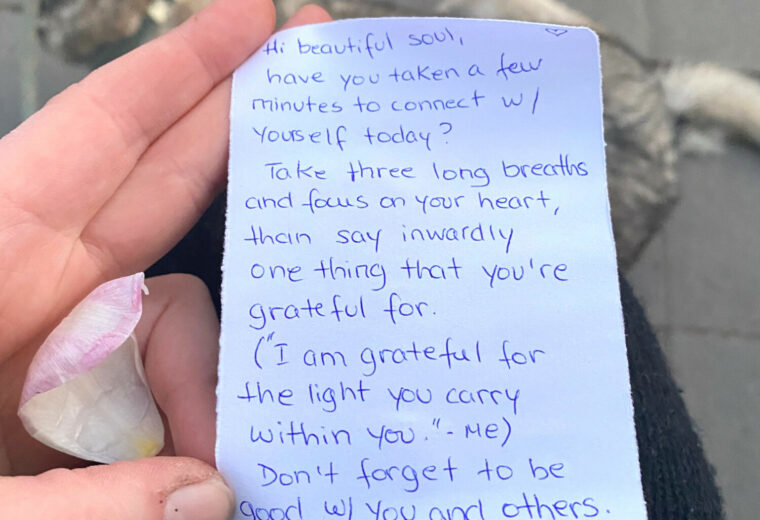 Hi beautiful soul,
have you taken a few
minutes to connect w/
yourself today?
Take three long breaths
and focus on your heart,
than say inwardly
one thing that you're
grateful for.
("I am grateful for
the light you carry
within you." - Me)
Don't forget to be
good w/ you and others.